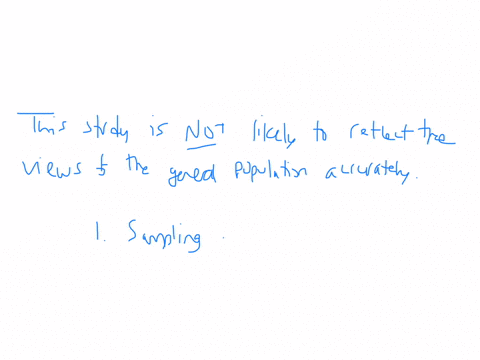 This study is NOT likely to reflect the
views of the general population accurately.
1. Sampling